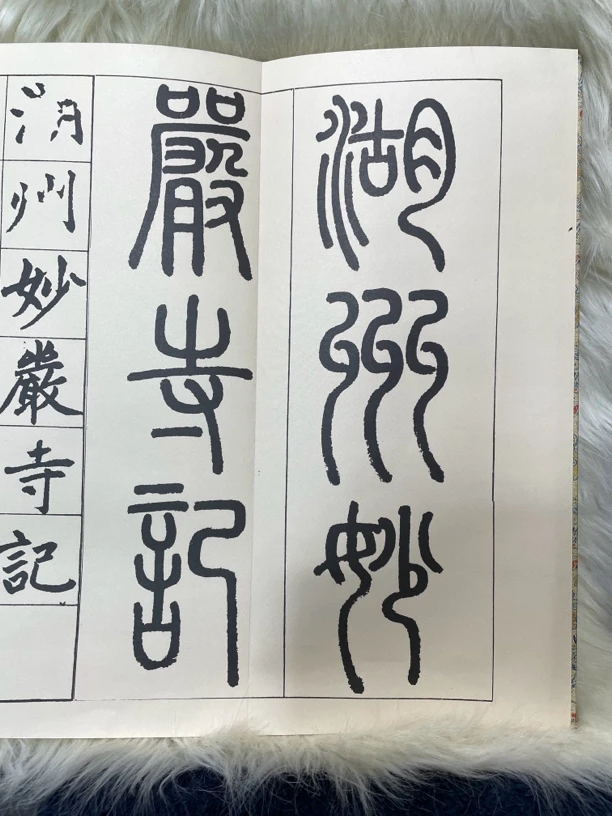 湖州妙
嚴寺記
湖州妙嚴寺記